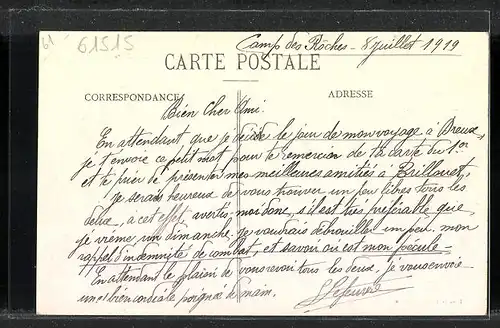 61 61515
Camp des Rôches - 8 juillet 1919
CARTE POSTALE
CORRESPONDANCE
ADRESSE
Bien Cher Ami.
En attendant que je décide le jour de mon voyage à Dreux,
je t'envoie ce petit mot pour te remercier de ta carte du 1er
et te prier de présenter mes meilleures amitiés à Brillouet,
Je serais heureux de vous trouver un peu libres tous les
deux, à cet effet avertis-moi donc, s'il est très préférable que
je vienne un dimanche. Je voudrais débrouiller un peu, mon
rappel d'indemnité de combat, et savoir où est mon pécule.
En attendant le plaisir de vous revoir tous les deux, je vous envoie
une bien cordiale poignée de main.
Lefeuvre